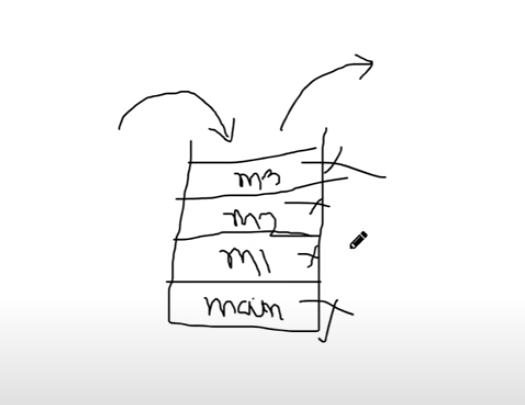 m3
m2
m1
main